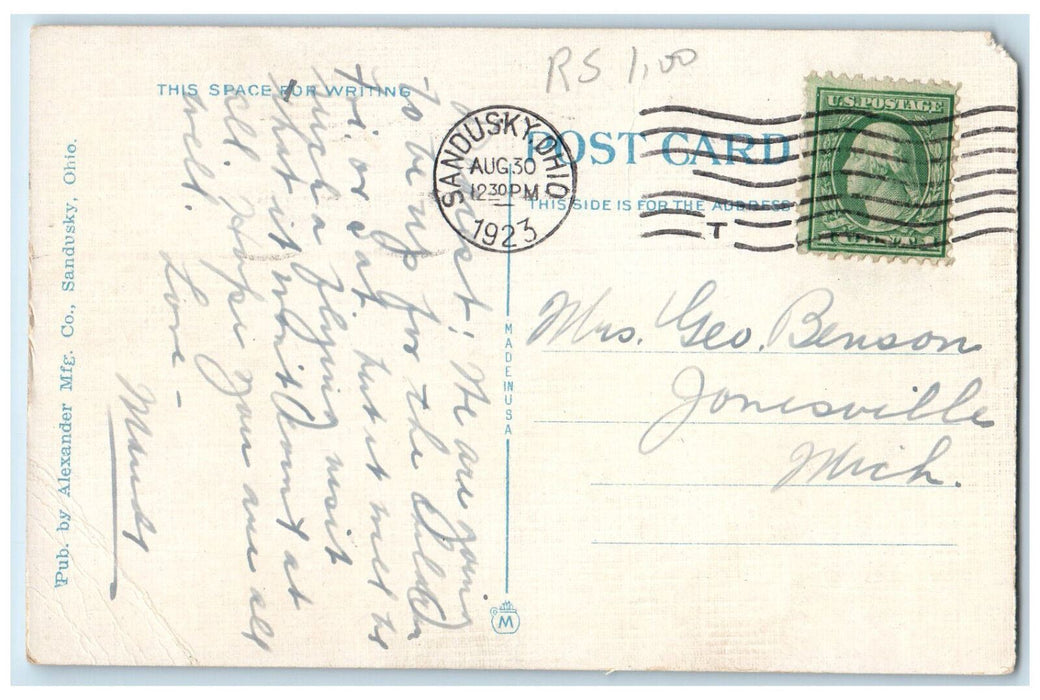 RS 1.00
THIS SPACE FOR WRITING
POST CARD
THIS SIDE IS FOR THE ADDRESS
SANDUSKY, OHIO
AUG 30
12 30 PM
1923
T
U.S. POSTAGE
Mrs. Geo. Benson
Jonesville
Mich.
We are going
to be up for the children
Fri. or Sat. but it will be
such a flying visit
that it won't count at
all. Hope you are all
well.
Love -
MADE IN USA
M
Pub. by Alexander Mfg. Co., Sandusky, Ohio.